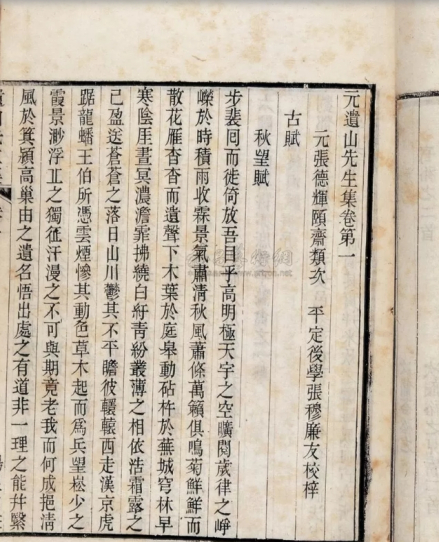 元遺山先生集卷第一
元張德輝頤齋類次 平定後學張穆廉友校梓
古賦
秋望賦
步裴回而徙倚放吾目乎高明極天宇之空曠閱歲律之崢
嶸於時積雨收霖景氣肅清秋風蕭條萬籟俱鳴菊鮮鮮而
散花雁杳杳而遺聲下木葉於庭皐動砧杵於蕪城穹林早
寒陰厓晝冥濃澹霏拂繞白紆青紛叢薄之相依浩霜露之
已盈送蒼蒼之落日山川鬱其不平瞻彼轘轅西走漢京虎
踞龍蟠王伯所憑雲煙慘其動色草木起而爲兵望崧少之
霞景渺浮丘之獨征汗漫之不可與期竟老我而何成挹淸
風於箕潁高巢由之遺名悟出處之有道非一理之能幷繄